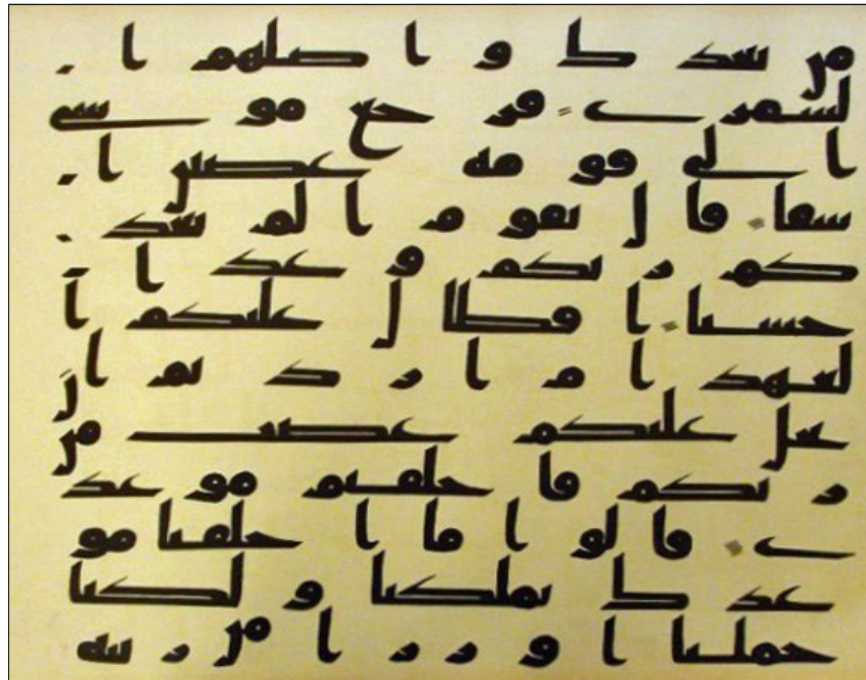 من بعدك واضلهم ا
لسمرى فرجع موسى
الى قومه غضبن ا
سفا قال يقوم الم يعد
كم ربكم وعدا
حسنا افطال عليكم ا
لعهد ام اردتم ان
يحل عليكم غضب من
ربكم فاخلفتم موعد
ى قالوا ما اخلفنا مو
عدك بملكنا ولكنا
حملنا اوزرا من زينه